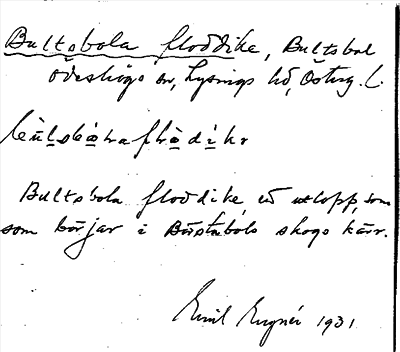 Bultsbola floddike, Bultsbol
Ödeshögs sn, Lysings hd, Österg. l.
Bultsbola floddike, ett utlopp, som
som börjar i Bultsbols skogs kärr.
Emil Engnér 1931